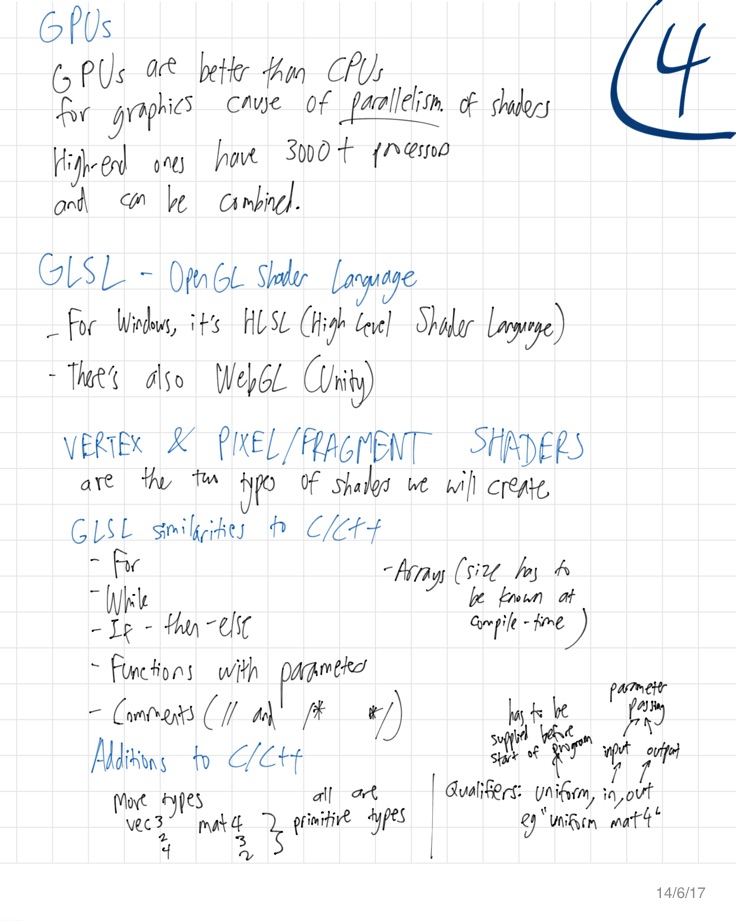 GPUs
4
GPUs are better than CPUs
for graphics cause of parallelism of shaders
High-end ones have 3000+ processors
and can be combined.
GLSL - OpenGL Shader Language
- For Windows, it's HLSL (High Level Shader Language)
- There's also WebGL (Unity)
VERTEX & PIXEL/FRAGMENT SHADERS
are the two types of shaders we will create
GLSL similarities to C/C++
- For
- While
- If - then - else
- Functions with parameters
- Comments (// and /* */)
- Arrays (size has to
be known at
compile-time)
Additions to C/C++
More types
vec3 mat4
2 3
4 2
all are
primitive types
has to be
supplied before
start of program
parameter
passing
input output
Qualifiers: uniform, in, out
eg "uniform mat4"
14/6/17